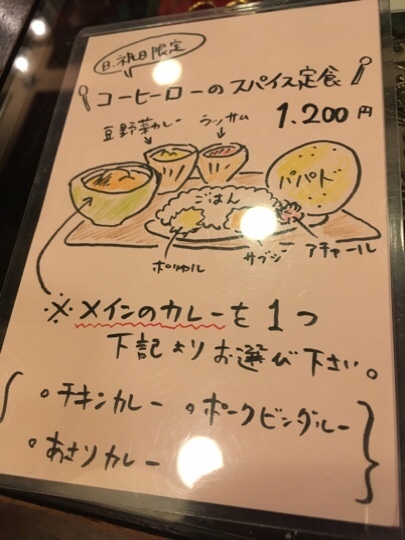 日、祝日限定
コーヒーローのスパイス定食
1.200円
豆野菜カレー
ラッサム
パパド
ごはん
ポリヤル
サブジ
アチャール
※メインのカレーを1つ
下記よりお選び下さい。
○チキンカレー ○ポークビンダルー
○あさりカレー